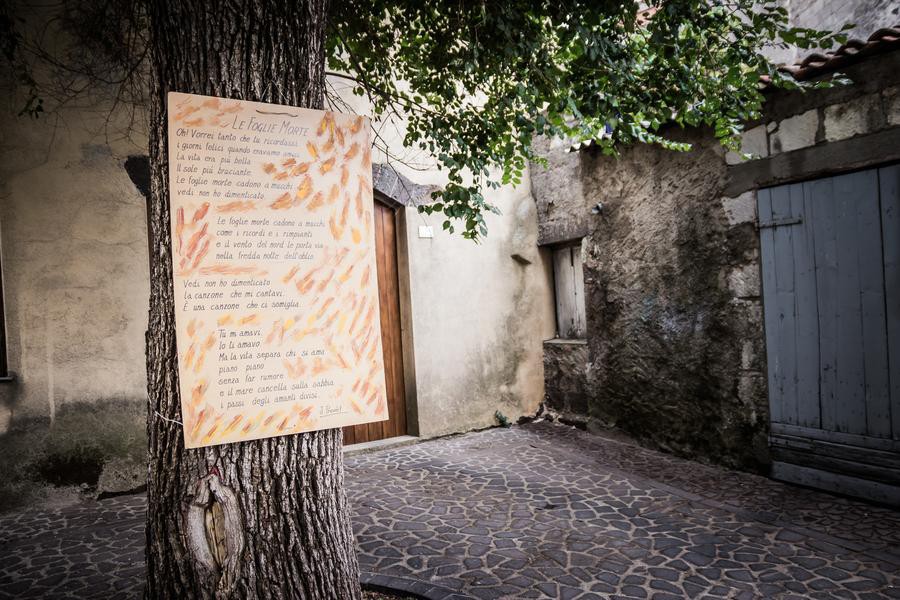 LE FOGLIE MORTE
Oh! Vorrei tanto che tu ricordassi
i giorni felici quando eravamo amici
La vita era più bella
Il sole più bruciante.
Le foglie morte cadono a mucchi
vedi non ho dimenticato.
Le foglie morte cadono a mucchi
come i ricordi e i rimpianti
e il vento del nord le porta via
nella fredda notte dell'oblio.
Vedi non ho dimenticato
la canzone che mi cantavi.
È una canzone che ci somiglia
Tu mi amavi.
Io ti amavo
Ma la vita separa chi si ama
piano piano
senza far rumore
e il mare cancella sulla sabbia
i passi degli amanti divisi.
J. Prevért